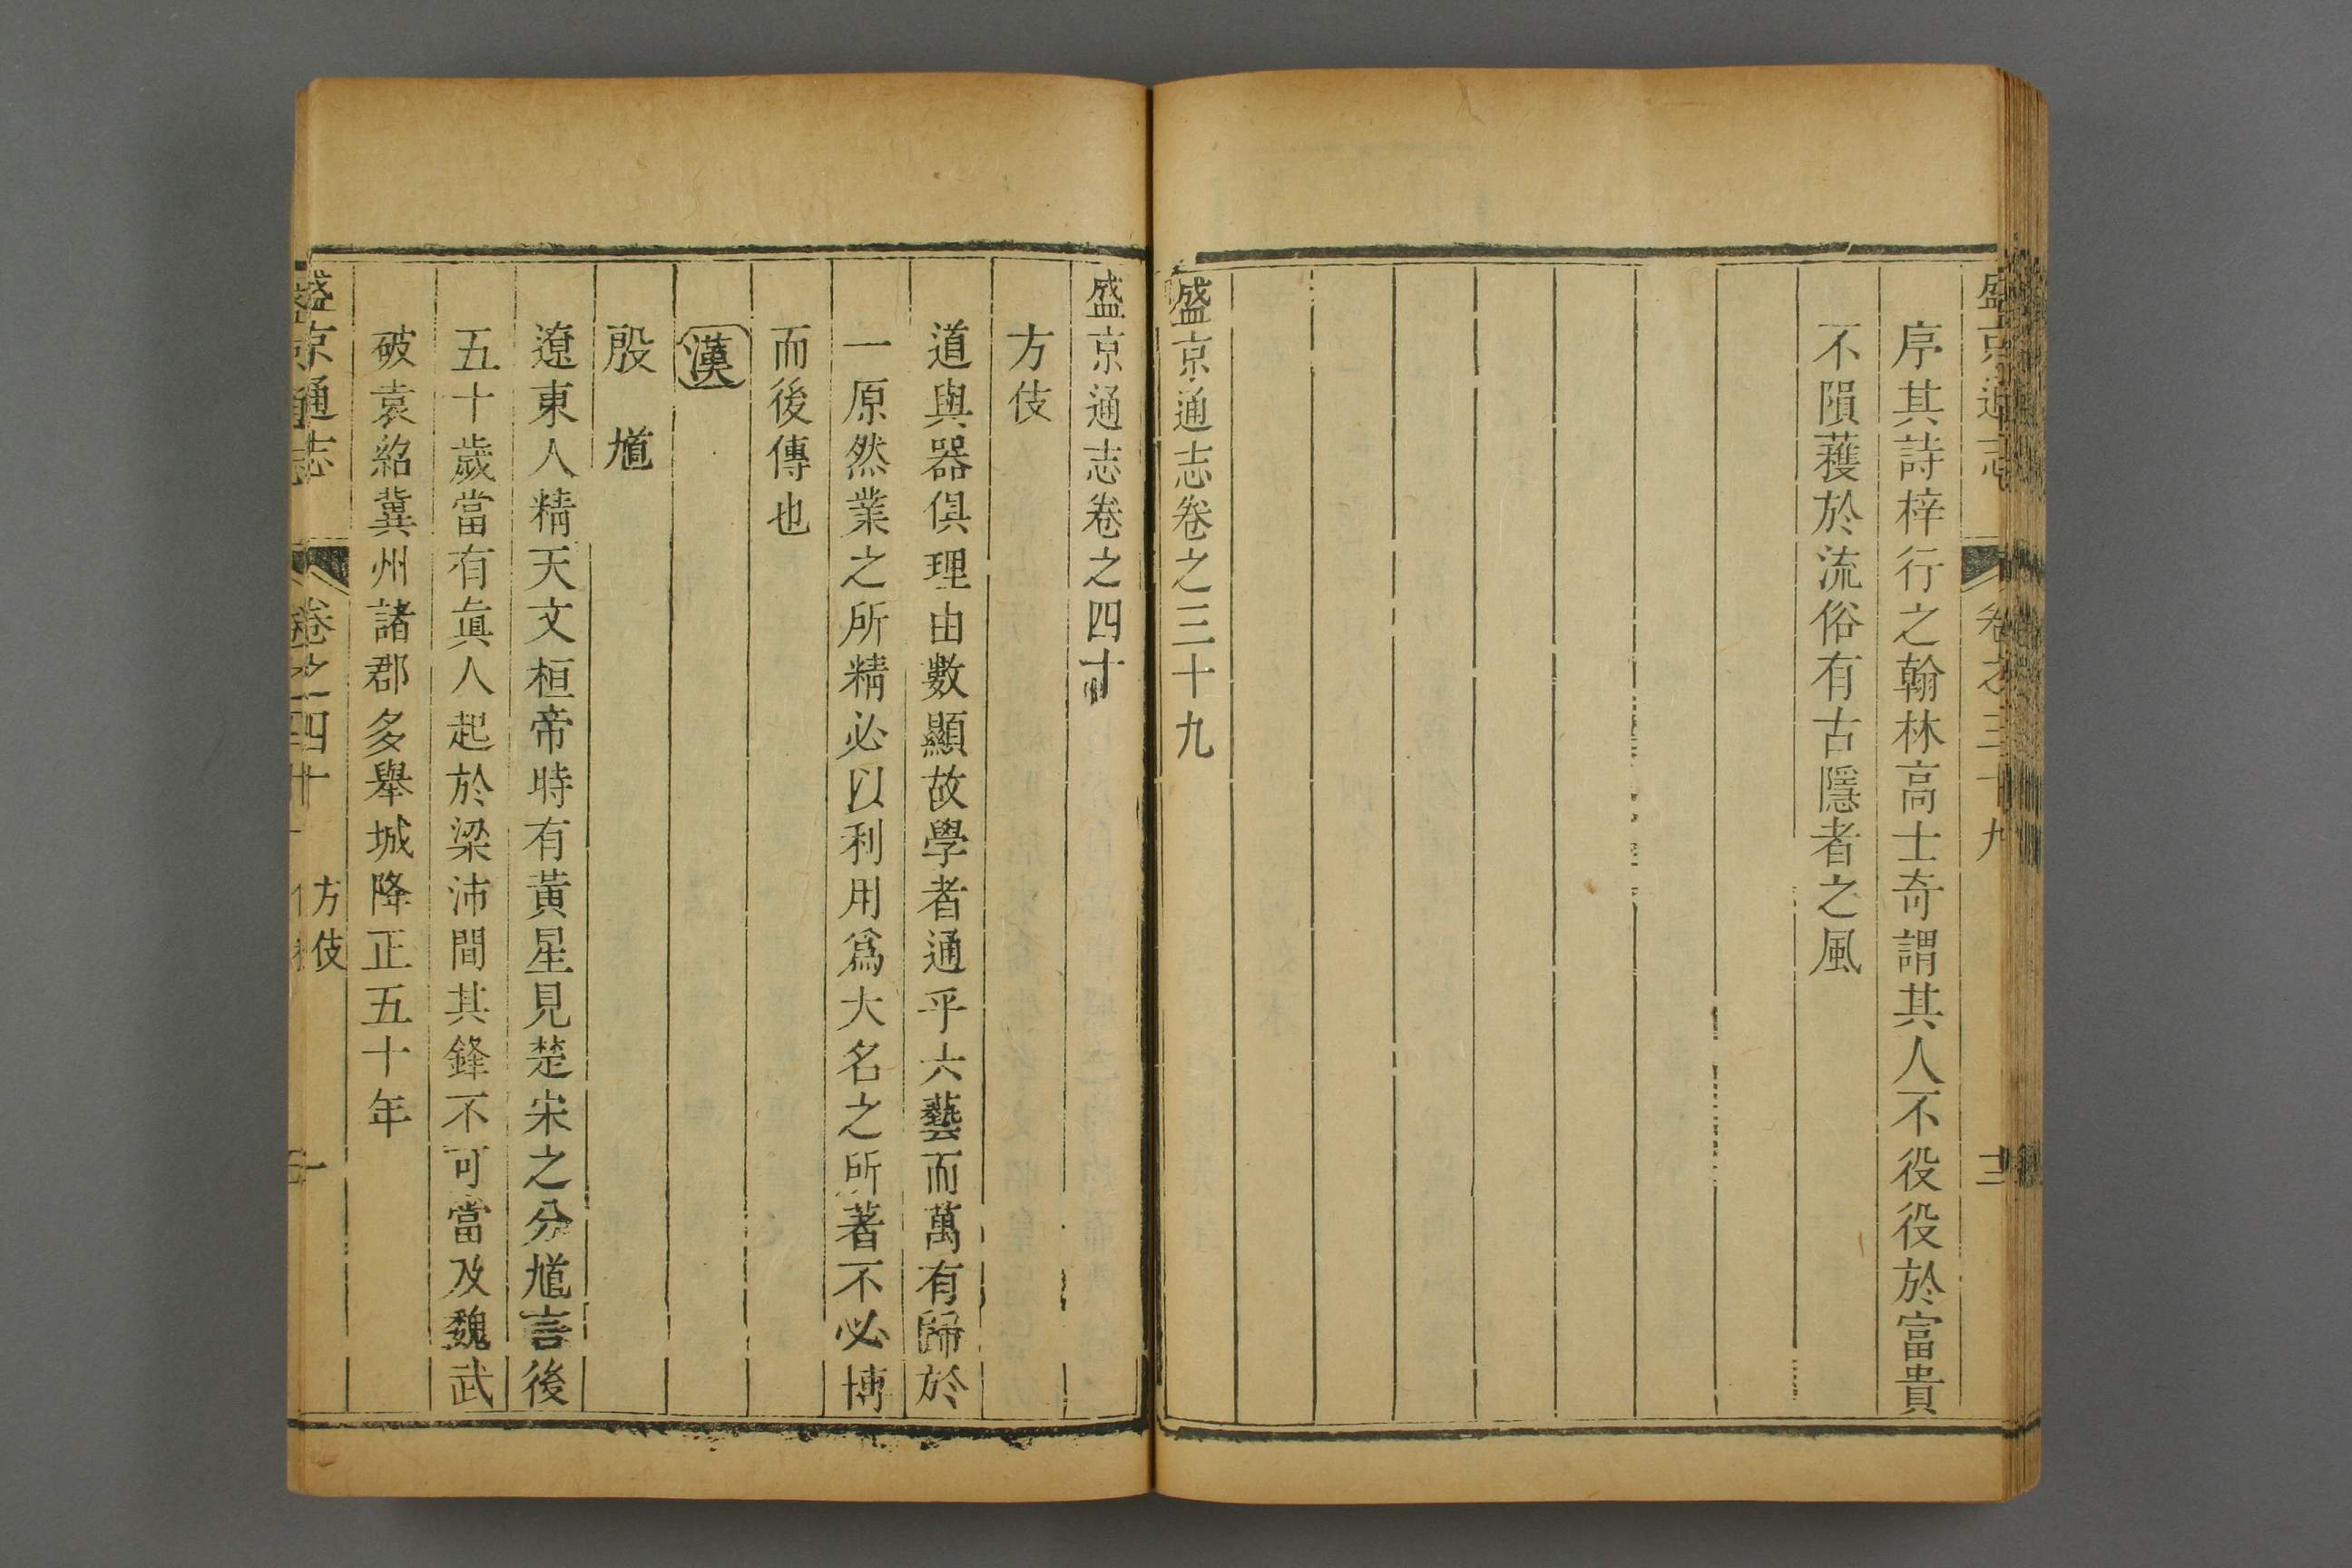 盛京通志 卷之三十九 十二
序其詩梓行之翰林高士奇謂其人不役役於富貴
不隕蒦於流俗有古隱者之風
盛京通志卷之三十九
盛京通志卷之四十
方伎
道與器俱理由數顯故學者通乎六藝而萬有歸於
一原然業之所精必以利用爲大名之所著不必博
而後傳也
漢
殷馗
遼東人精天文桓帝時有黃星見楚宋之分馗言後
五十歲當有眞人起於梁沛間其鋒不可當及魏武
破袁紹冀州諸郡多舉城降正五十年
盛京通志 卷之四十 方伎 一